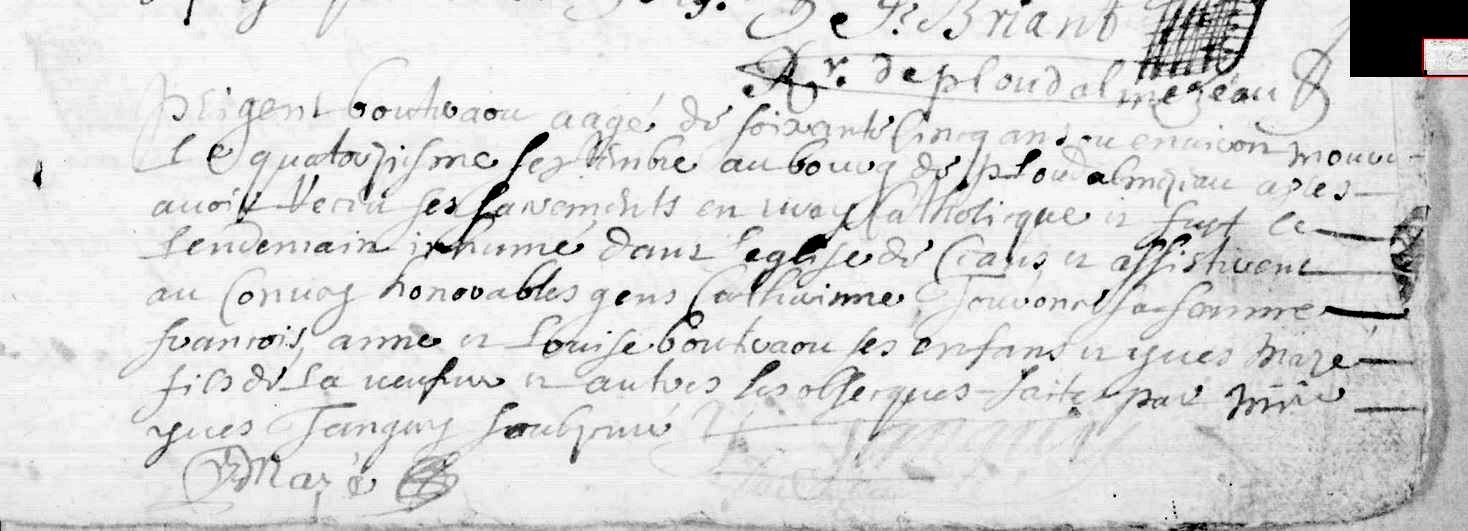 De St Briant
Rr. de ploudalmezeau
prigent bouthraou aagé de soixante cincq ans ou environ mouru
le quatorzisme septtembre au bourg de ploudalmezeau apres
avoir receu ses sacrements en vray catholicque et fust le
lendemain inhumé dans leglise de ceans et assisterent
au convoy honorables gens Catherinne Jouvone sa femme
francois, anne et Louise bouthraou ses enfans et yves Mazé
fils de la veufve et autres les obseques faite par
yves Tanguy soubzcuré
Y Mazé